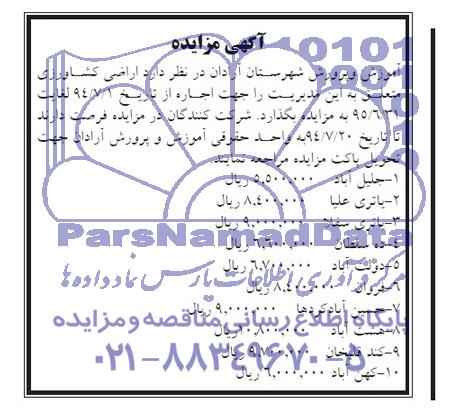 آگهی مزایده
آموزش وپرورش شهرستان آرادان در نظر دارد اراضی کشاورزی
متعلق به این مدیریت را جهت اجاره از تاریخ ۹۴/۷/۱ لغایت
۹۵/۶/۳۱ به مزایده بگذارد. شرکت کنندگان در مزایده فرصت دارند
تا تاریخ ۹۴/۷/۲۰به واحد حقوقی آموزش و پرورش آرادان جهت
تحویل پاکت مزایده مراجعه نمایند.
۱-جلیل آباد ۵,۵۰۰,۰۰۰ ریال
۲-یاتری علیا ۸,۴۰۰,۰۰۰ ریال
۳-یاتری سفلا ۹,۰۰۰,۰۰۰ ریال
ParsNamadData
۴-ده سلطان ۶,۶۰۰,۰۰۰ ریال
۵-دولت آباد ۶,۷۰۰,۰۰۰ ریال
مرکز فرآوری اطلاعات پارس نماد داده ها
۶-فروان ۸,۴۰۰,۰۰۰ ریال
۷-حسین آبادکردها ۹,۰۰۰,۰۰۰ ریال
پایگاه اطلاع رسانی مناقصه و مزایده
۸-هشت آباد ۱۰,۸۰۰,۰۰۰ ریال
۹-کند قلیخان ۹,۷۰۰,۰۰۰ ریال
۰۲۱-۸۸۳۴۹۶۷۰-۵
۱۰-کهن آباد ۶,۰۰۰,۰۰۰ ریال